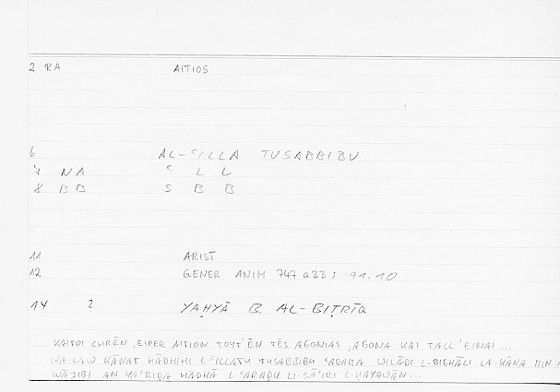 2 RA AITIOS
6 AL-ʿILLA TUSABBIBU
7 NA ʿ L L
8 BB S B B
11 ARIST
12 GENER ANIM 747 a33 : 91.10
14 ? YAḤYĀ B. AL-BIṬRĪQ
KAITOI CHRĒN, EIPER AITION TOYT' ĒN TĒS AGONIAS, AGONA KAI TALL' EINAI...
WA-LAW KĀNAT HĀDHIHI L-ʿILLATU TUSABBIBU WILĀDI L-BIGHĀLI LA-KĀNA MIN
WĀJIBI AN YAʿRIḌA HĀDHĀ L-ʿARAḌU LI-SĀʾIRI L-ḤAYAWĀN...